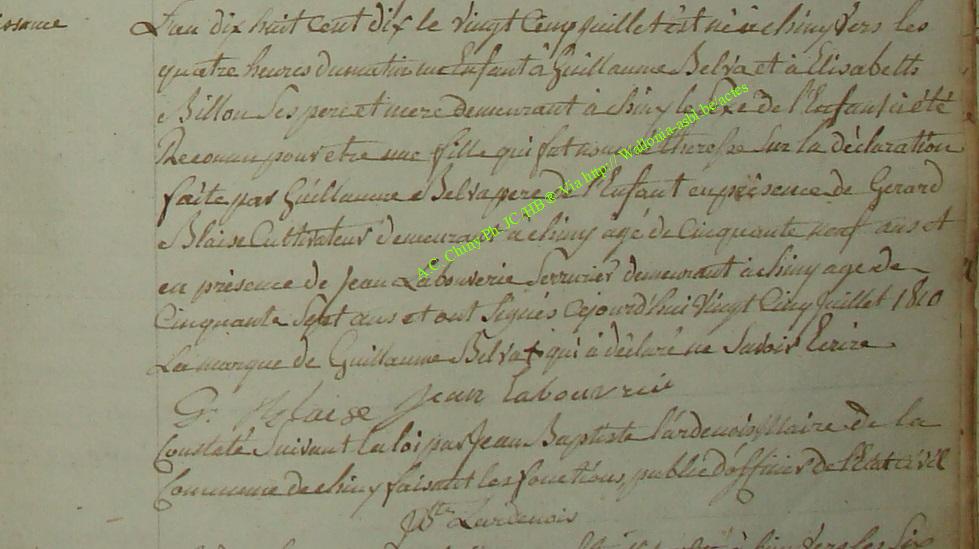 issance
L'an dix huit cent dix le vingt cinq juillet est né à chiny vers les
quatre heures du matin un Enfant à Guillaume Belva et à Elisabeth
Billon ses pere et mere demeurant à chiny le sexe de l'Enfant a été
Reconnu pour etre une fille qui fut nommé therese Sur la déclaration
faite par Guillaume Belva pere de l'Enfant en présence de Gerard
Blaise Cultivateur demeurant à chiny agé de Cinquante neuf ans et
en présence de Jean Labouverie Serrurier demeurant à chiny age de
Cinquante Sept ans et ont Signés cejourd'hui vingt Cinq Juillet 1810
La marque de Guillaume Belva + qui à déclaré ne Savoir Ecrire
G. Blaise Jean Labouvrie
Constaté Suivant la loi par Jean Baptiste Lardenois Maire de la
Commune de chiny faisant les fonctions public d'officier de l'Etat civil
Lardenois
A.C. Chiny Ph. JC /HB ® Via http:// Wallonia-asbl.be/actes